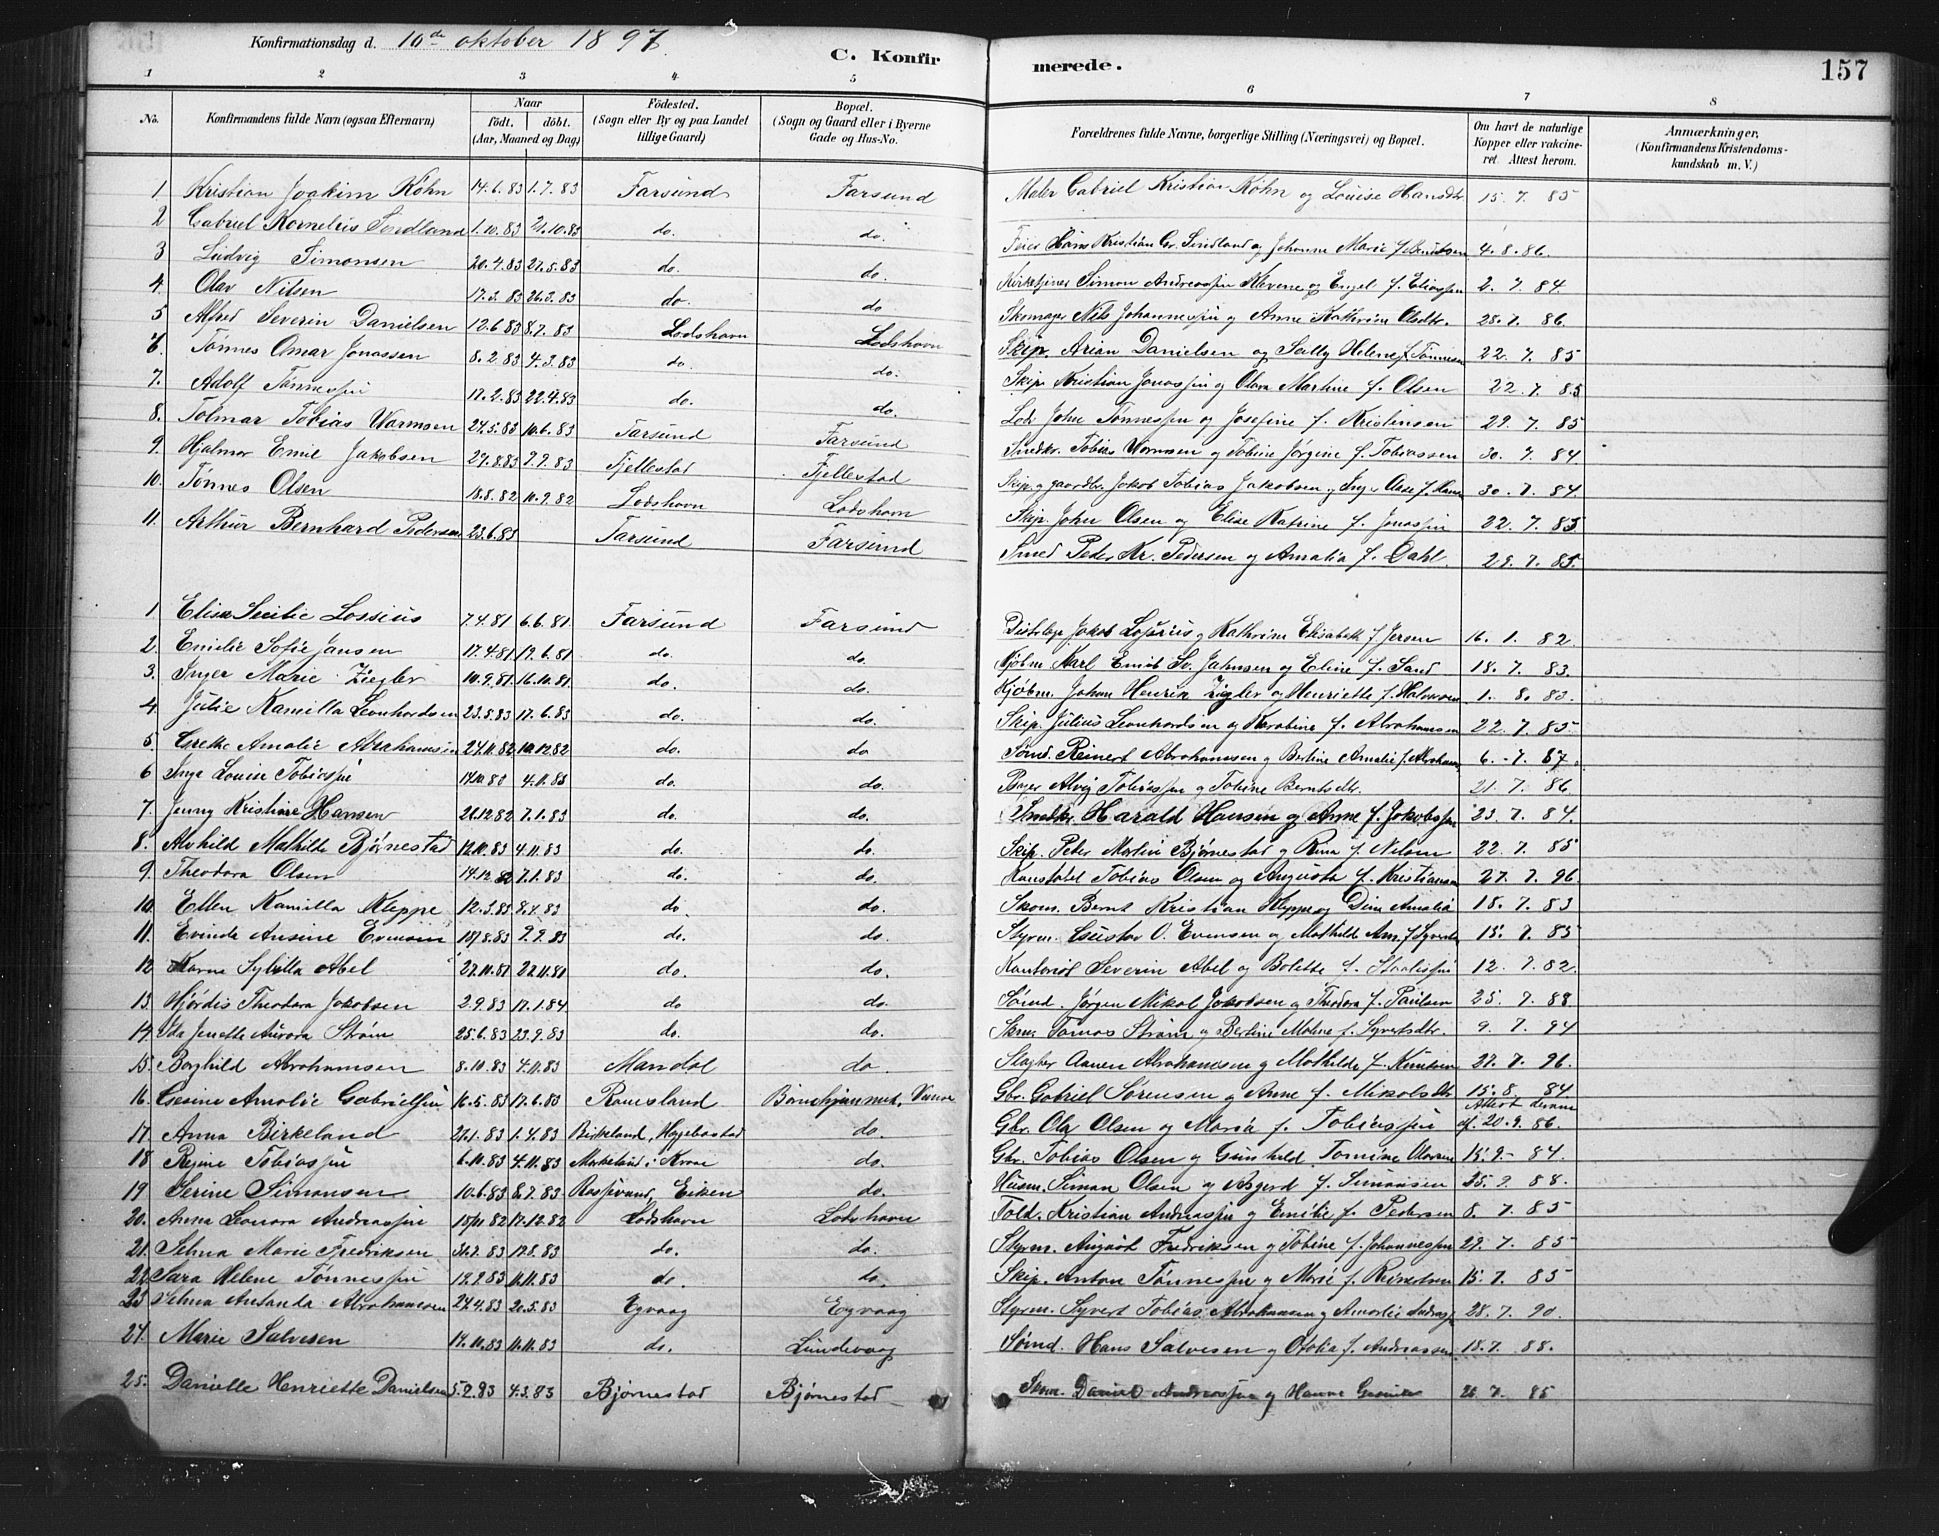 Konfirmationsdag d. 10de oktober 1897.
C. Konfirmerede.
157
1 2 3 4 5 6 7 8
No. Konfirmandens fulde Navn (ogsaa Efternavn) Naar födt. döbt. (Aar, Maaned og Dag) Födested. (Sogn eller By og paa Landet tillige Gaard) Bopæl. (Sogn og Gaard eller i Byerne Gade og Hus-No. Forældrenes fulde Navne, borgerlige Stilling (Næringsvei) og Bopæl. Om havt de naturlige Kopper eller vaccineret. Attest herom. Anmærkninger. (Konfirmandens Kristendomskundskab m. V.)
1. Kristian Joakim Köhn 14.6.83 1.7.83 Farsund Farsund Maler Gabriel Kristian Köhn og Louise Hansdtr 15. 7. 85
2 Gabriel Kornelius Sindland 1.10.83 21.10.83 do. do. Feier Hans Kristian Gr. Sindland og Johanne Marie f. Berntsen 4. 8. 86.
3 Ludvig Simonsen 20.4.83 27.5.83 do. do. Kirketjener Simon Andreassen Klevene og Engel f. Eliassen 2. 7. 84.
4. Olav Nilsen 17.3.83 26.3.83 do. do Skomager Nils Johannessen og Anne Kathrine Olsdtr. 28. 7. 86.
5 Alfred Severin Danielsen 12.6.83 8.7.83 Lodshavn Lodshavn Skip. Arian Danielsen og Sally Helene f. Tönnesen 22. 7. 85
6 Tönnes Omar Jonassen 8.2.83 4.3.83 do. do. Skip. Kristian Jonassen og Olava Martine f. Olsen 22. 7. 85
7. Adolf Tönnessen 17.2.83 22.4.83 do. do. Lods John Tönnessen og Josefine f. Kristensen 29. 7. 85
8. Tolmar Tobias Wormsen 27.5.83 10.6.83 Farsund Farsund Snedkr. Tobias Wormsen og Tobine Jörgine f. Tobiassen 30. 7. 84.
9. Hjalmar Emil Jakobsen 27.8.83 9.9.83 Fjellestad Fjellestad Skip. og gaardbr. Jakob Tobias Jakobsen og Inger Olse f. Hansen 30. 7. 84
10. Tönnes Olsen 18.8.82 10.9.82 Lodshavn Lodshavn Skip. John Olsen og Elise Katrine f. Jonassen 22. 7. 85
11. Arthur Bernhard Pedersen 23.6.83 Farsund Farsund Smed Peder Kr. Pedersen og Amalia f. Dahl. 28. 7. 85.
1. Elise Secilie Lossius 7.4.81 6.6.81 Farsund Farsund Distrlæge Jakob Lossius og Kathrine Elisabeth f. Jersen 16. 1. 82.
2. Emilie Sofie Jansen 17.4.81 19.6.81 do. do. Kjöbm. Karl Emil Sv. Jahnsen og Eline f. Sand 18. 7. 83.
3. Inger Marie Ziegler 10.9.81 16.10.81 do. do. Kjöbm. Johan Henrik Zigler og Henriette f. Halvorsen 1. 8. 83.
4. Julie Kamilla Leonhardsen 23.5.83 17.6.83 do. do. Skip. Julius Leonhardsen og Karoline f. Abrahamsen 22. 7. 85
5. Grethe Amalie Abrahamsen 24.11.82 10.12.82 do. do Sömd. Reinert Abrahamsen og Bertine Amalie f. Abrahams 6. 7. 87.
6 Inga Louise Tobiassen 14.10.83 4.11.83 do. do. Bager Alvig Tobiassen og Tobine Berntsdtr. 21. 7. 86.
7. Jenny Kristine Hansen 21.12.82 7.1.83 do. do. Smedkr. Harald Hansen og Anne f. Jakobssen 23. 7. 84.
8. Alvhild Mathilde Björnestad 12.10.83 4.11.83 do. do. Skip. Peder Martin Björnestad og Rina f. Nilsen 22. 7. 85
9. Theodora Olsen 14.12.82 7.1.83 do. do. Konstabel Tobias Olsen og Augusta f. Kristiansen 27. 7. 96.
10. Ellen Kamilla Kleppe 12.3.83 8.4.83 do. do. Skom. Bernt Kristian Kleppe og Dina Amalia 18. 7. 83
11. Evinda Ansine Evensen 19.8.83 9.9.83 do. do. Styrm. Gustav O. Evensen og Mathilde Am. f. Syverts 15. 7. 85
12. Karna Sybilla Abel 27.10.81 27.11.81 do. do. Kontorist Severin Abel og Bolette f. 12. 7. 82.
13. Hjördis Theodora Jakobsen 2.9.83 17.1.84 do do. Sömd. Jörgen Mikal Jakobsen og Theodora f. Paulsen 25. 7. 88.
14. Ida Jenette Aurora Ström 25.6.83 23.9.83 do. do. Skom. Tomas Ström og Bertine Maline f. Syvertsdtr. 9. 7. 94
15. Borghild Abrahamsen 8.10.83 4.11.83 Mandal do. Slagter Aanen Abrahamsen og Mathilde f. Knudsen 27. 7. 96.
16. Gesine Amalie Gabrielsen 16.5.83 17.6.83 Ramsland Börnehjemmet, Vanse Gbr. Gabriel Sörensen og Anne f. Mikalsdtr 15. 8. 84
17. Anna Birkeland 27.1.83 1.4.83 Birkeland, Hægebostad do. Gbr. Ola Olsen og Maria f. Tobiassen Attest derom af. 20. 9. 86.
18 Regine Tobiassen 6.10.83 4.11.83 i Kvas do. Gbr. Tobias Olsen og Gunhild Tomine Olavsen 15. 9. 84.
19 Serine Simonsen 10.6.83 8.7.83 Rossevand, Eiken do. Husm. Simon Olsen og Asgerd f. Simonsen 25. 9. 88.
20. Anna Leonora Andreassen 15/11 82 17.12.82 Lodshavn Lodshavn Told. Kristian Andreassen og Emilie f. Pedersen 8. 7. 85
21. Selma Marie Fredriksen 31.7.83 19.8.83 do. do. Styrm. August Fredriksen og Tobine f. Johannessen 29. 7. 85
22 Sara Helene Tönnessen 19.9.83 11.11.83 do. do. Skip. Anton Tönnessen og Marie f. Reinertsen 15. 7. 85
23 Selma Antanda Abrahamsen 24.4.83 20.5.83 Egvaag Egvaag Styrm. Syvert Tobias Abrahamsen og Amalie Andreass 28. 7. 90.
24. Marie Salvesen 14.10.83 11.11.83 do. Lundevaag Sömd. Hans Salvesen og Otolia f. Andreassen 18. 7 88.
25. Danielle Henriette Danielsen 5.2.83 4.3.83 Björnestad Björnestad Skom. Daniel Andreassen og Hanna 28. 7. 85